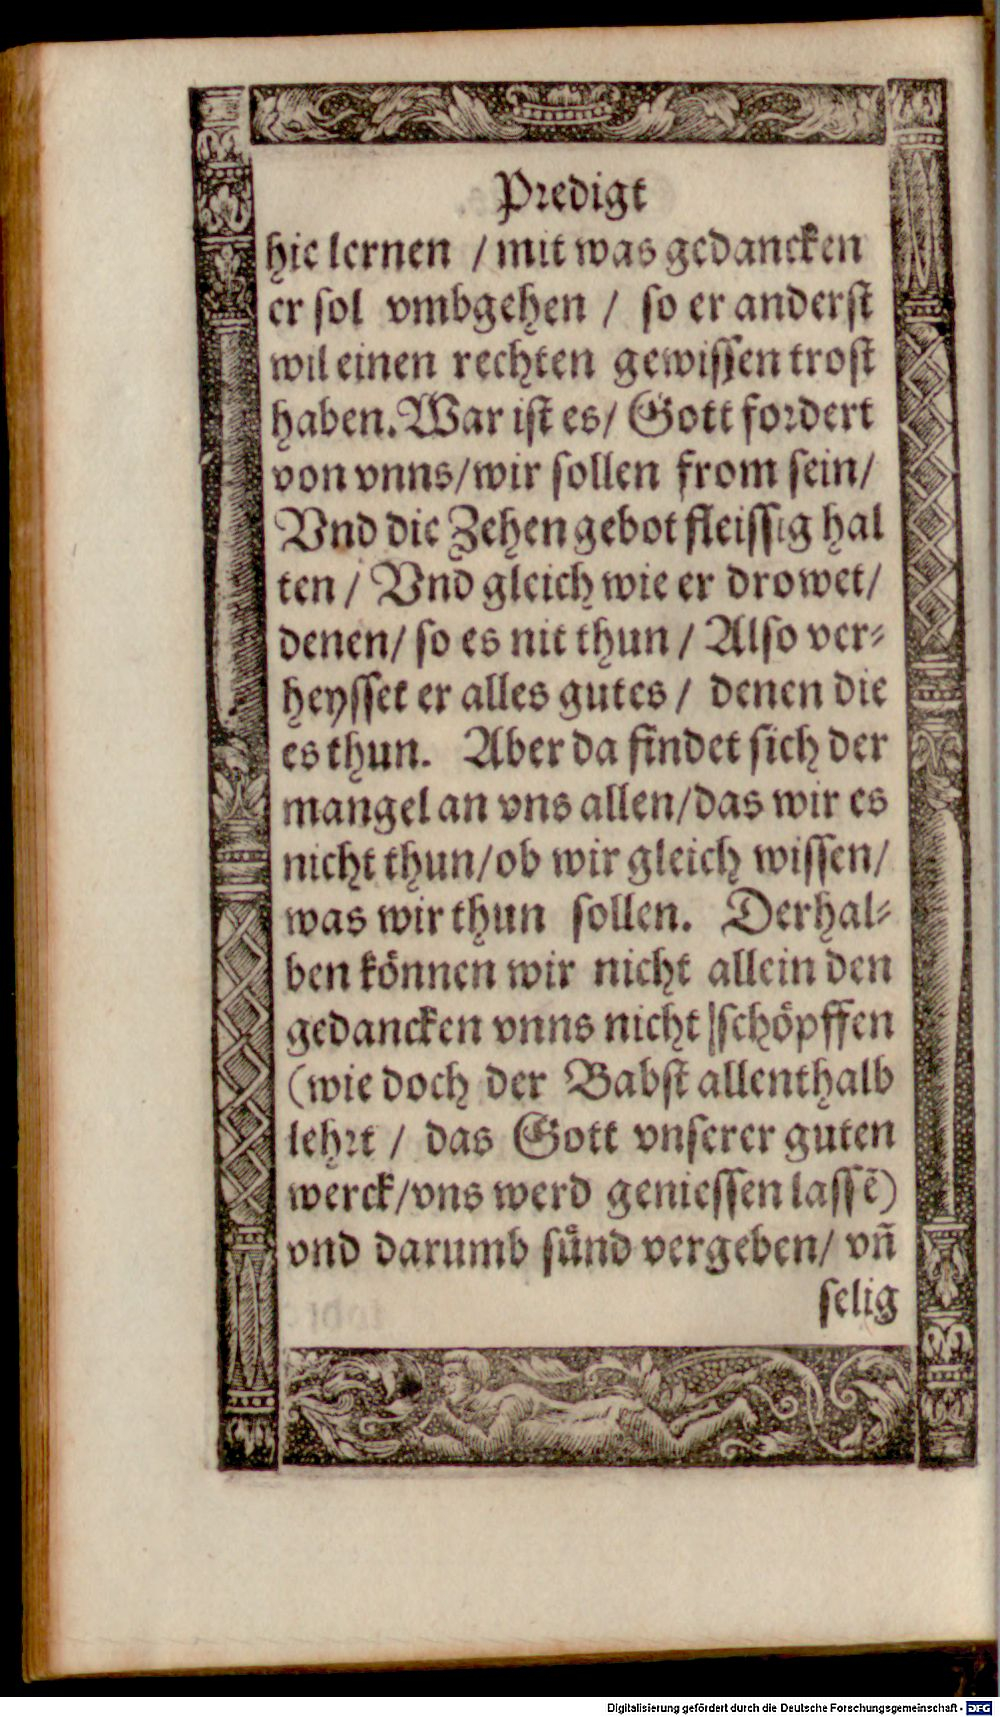 Predigt
hie lernen / mit was gedancken
er sol vmbgehen / so er anderst
wil einen rechten gewissen trost
haben. War ist es / Gott fordert
von vnns / wir sollen from sein /
Vnd die Zehen gebot fleissig hal
ten / Vnd gleich wie er drowet /
denen / so es nit thun / Also ver-
heysset er alles gutes / denen die
es thun. Aber da findet sich der
mangel an vns allen / das wir es
nicht thun / ob wir gleich wissen /
was wir thun sollen. Derhal-
ben können wir nicht allein den
gedancken vnns nicht schöpffen
(wie doch der Babst allenthalb
lehrt / das Gott vnserer guten
werck / vns werd geniessen lassē)
vnd darumb sünd vergeben / vñ
selig
Digitalisierung gefördert durch die Deutsche Forschungsgemeinschaft - DFG